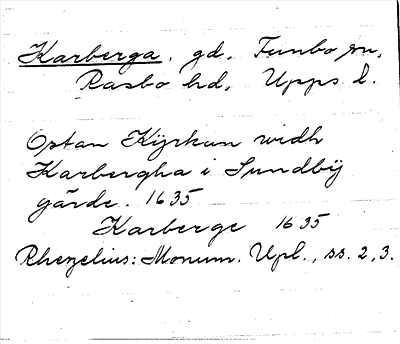 Karberga. gd. Funbo sn,
Rasbo hd, Upps l.
Optan Kijrkun widh
Karbergha i Sundbÿ
gärde. 1635
Karberge 1635
Rhezelius: Monum. Upl., ss. 2, 3.